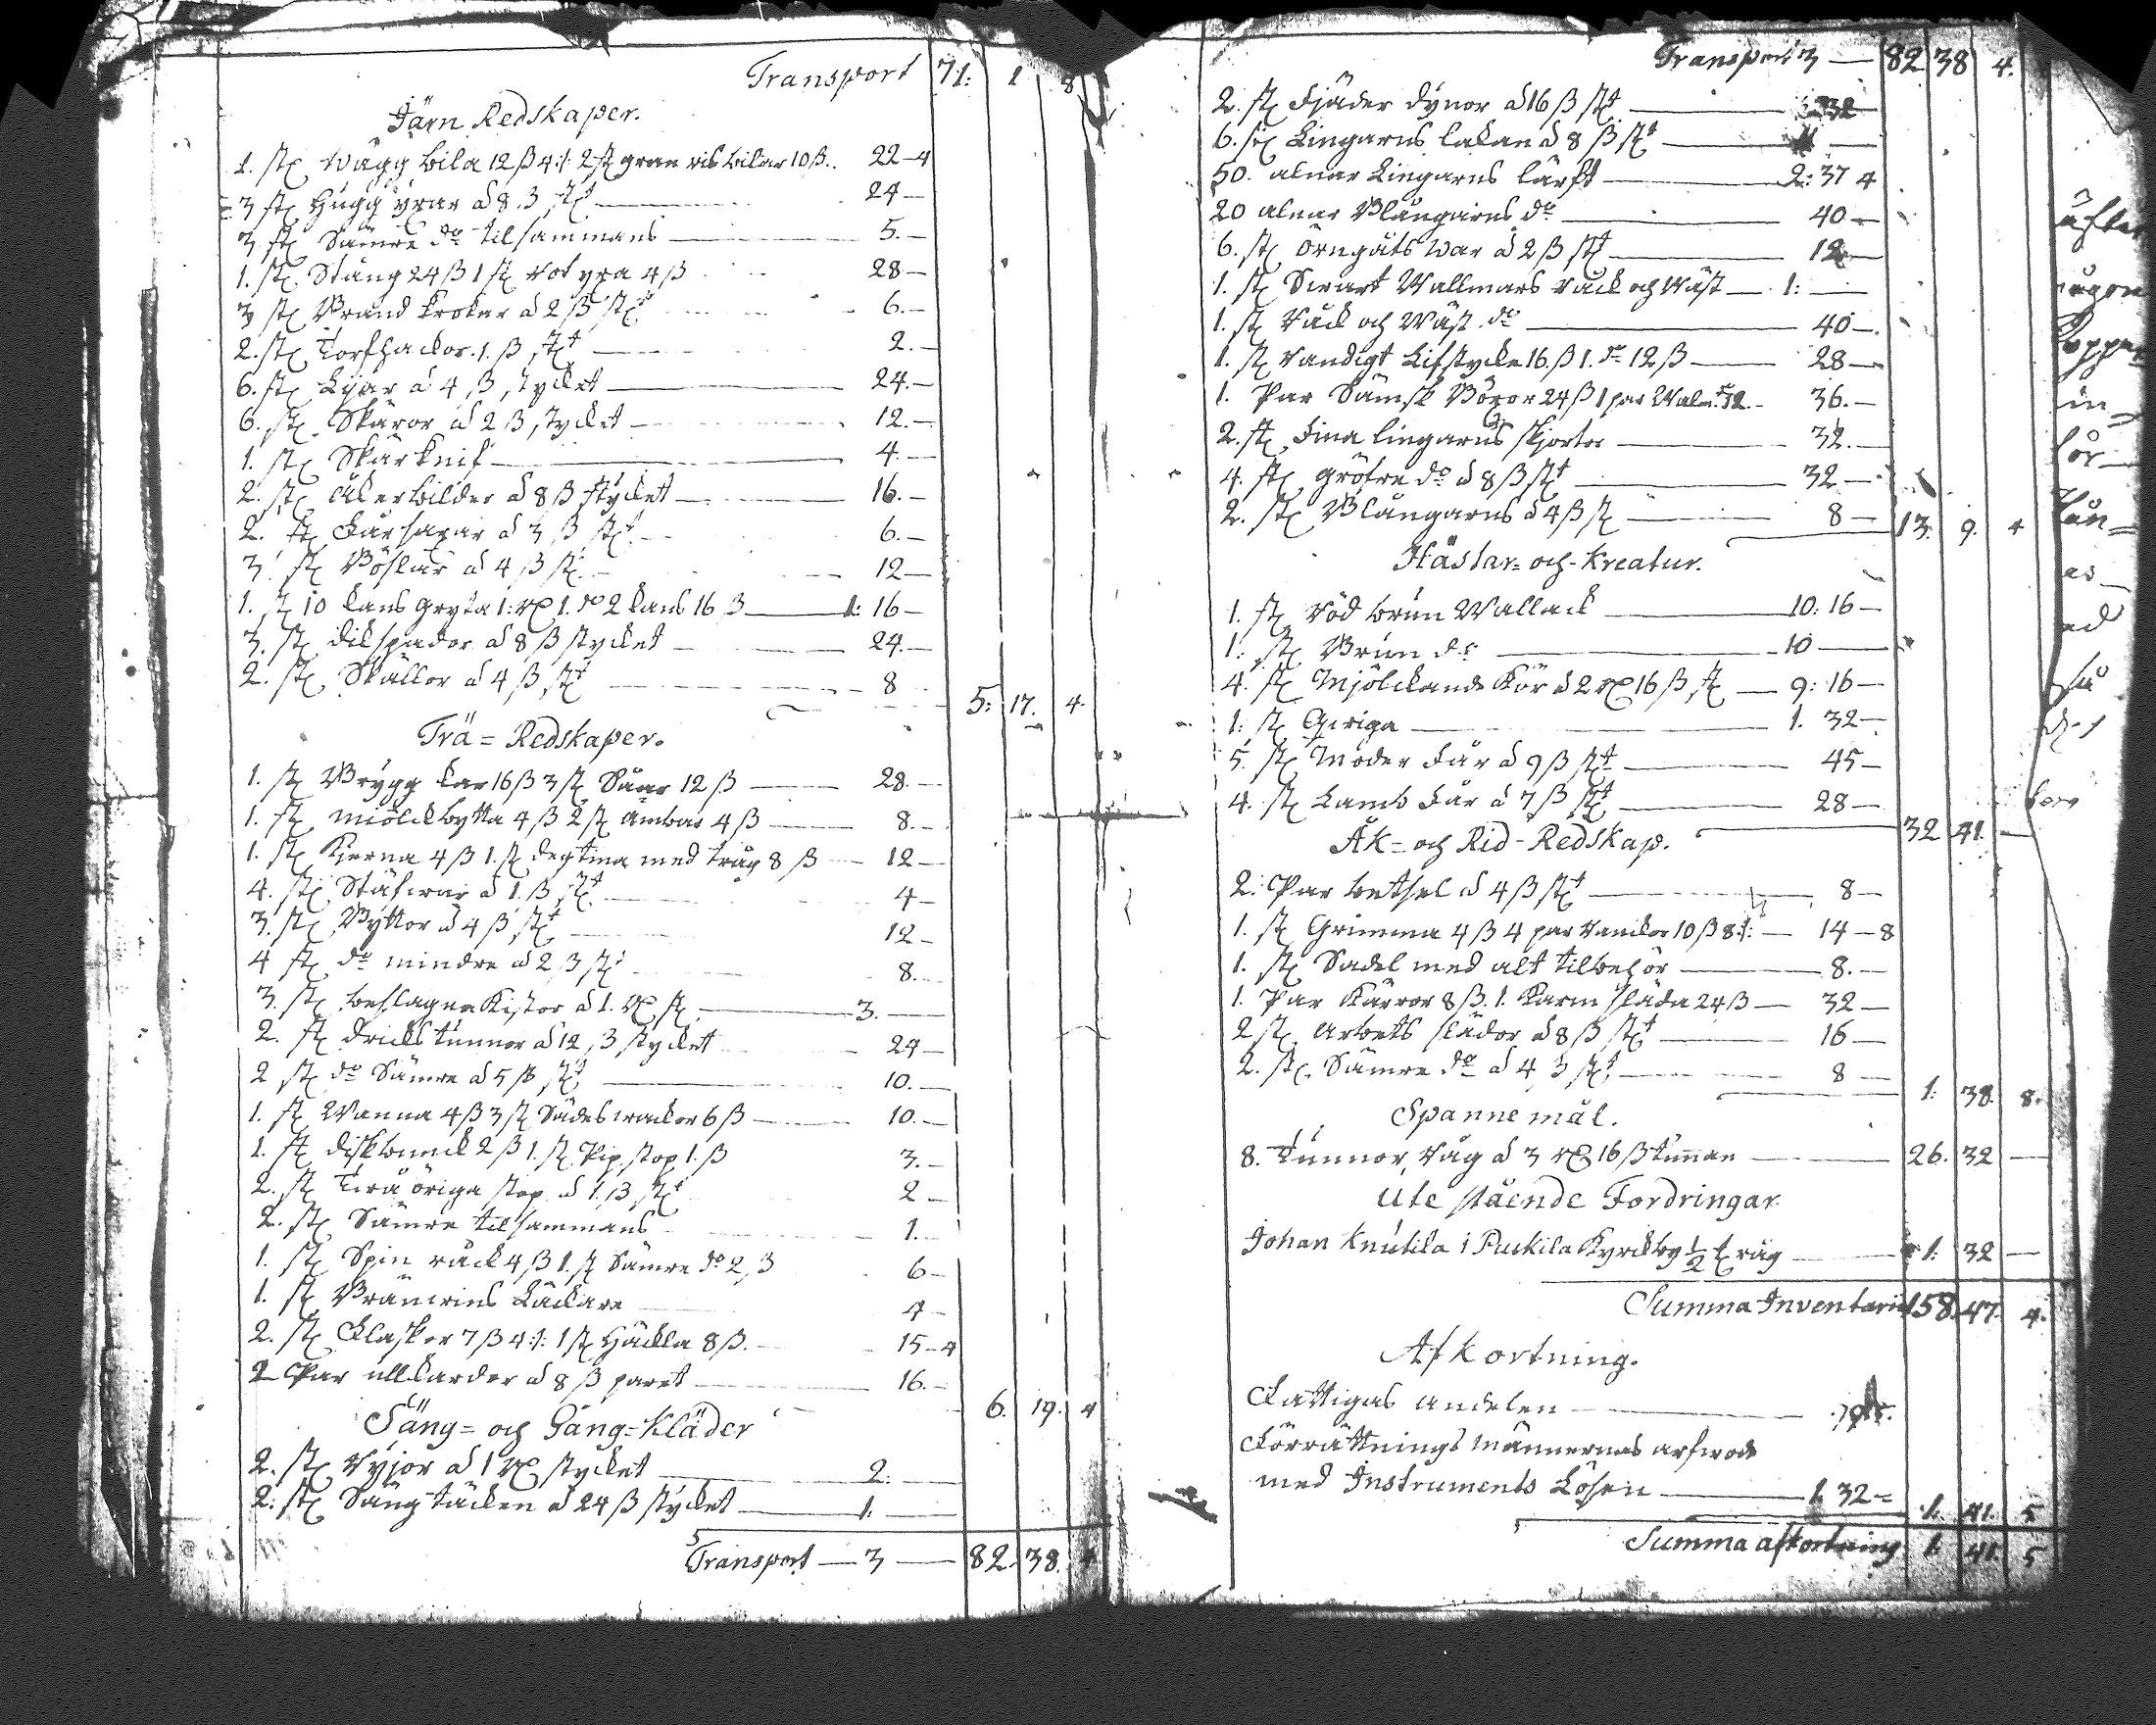 Transport 71: 1 8
Järn Redskaper.
1. st wägg bila 12 ß 4:/: 2 st gran ris bilar 10 ß. 22-4
3 st Hugg yxar á 8 ß st 24-
3 st Sämre do tilsammans 5.-
1. st Stång 24 ß 1 st rot yxa 4 ß 28-
3 st Brand krokar á 2 ß st 6.-
2. st Torfhackor 1. ß st 2.-
6. st Lijar á 4 ß stycket 24.-
6. st Skäror á 2 ß stycket 12.-
1. st Skärknif 4.-
2. st Åkerbilder á 8 ß stycket 16.-
2. st Fårsaxar á 3 ß st 6.-
3. st Böslar á 4 ß st 12-
1. st 10 kans Gryta 1: rd 1. do 2 kans 16 ß 1: 16-
3. st dikspador á 8 ß stycket 24.-
2. st Skällor á 4 ß st 8
5: 17. 4.
Trä = Redskaper.
1. st Brygg kar 16 ß 3 st Såar 12 ß 28.-
1. st miölckbytta 4 ß 2 st ämbar 4 ß 8.-
1. st Kjerna 4 ß 1. st degtina med tråg 8 ß 12-
4. st Stäfwar á 1. ß st 4-
3. st Byttor á 4 ß st 12-
4 st do mindre á 2 ß st 8.
3. st beslagne Kistor á 1. rd st 3.
2. st drickstunnor á 12 ß stycket 24-
2 st do Sämre á 5 ß st 10.-
1. st Wanna 4 ß 3 st Sädes wackor 6 ß 10.-
1. st diskbunck 2 ß 1. st Pip stop 1. ß 3.-
2. st Twå öriga stop á 1. ß st 2-
2. st Sämre tilsammans 1.-
1. st Spin råck 4 ß 1. st Sämre do 2 ß 6-
1. st Bränwins Läckare 4-
2. st Flaskor 7 ß 4:/: 1 st Häckla 8 ß. 15-4
2 Par ullkardor á 8 ß paret 16.-
6. 19. 4
Säng= och Gång=Kläder
2. st Ryjor á 1 rd stycket 2:
2. st Sängtäcken á 24 ß stycket 1.
Transport 3 82. 38. 4
Transport 3 82 38 4.
2. st Fjäder dynor á 16 ß st 32
6. st Lingarns lakan á 8 ß st
50. alnar Lingarns lärft 2: 37 4
20 alnar Blångarns do 40-
6. st Örngåts war á 2 ß st 12-
1. st Swart Wallmars råck och Wäst 1:
1. st råck och Wäst do 40-.
1. st randigt Lifstycke 16. ß 1. do 12 ß 28-
1. Par Sämsk Böxor 24 ß 1 par Walm. 12.- 36.-
2. st Fina lingarns skjortor 32.-
4. st gröfre do á 8 ß st 32-
2. st Blångarns á 4 ß st 8-
13. 9. 4
Hästar= och Kreatur.
1. st röd brun Wallack 10: 16-
1. st Brun do 10
4. st Mjölckande Kör á 2 rd 16 ß st 9: 16-
1: st Qwiga 1. 32-
5. st Moder Får á 9 ß st 45-
4. st Lamb Får á 7 ß st 28-
32 41.-
Åk= och Rid-Redskap.
2. Par betsel á 4 ß st 8-
1. st Grimma 4 ß 4 par ranckor 10 ß 8:/: 14-8
1. st Sadel med alt tilbehör 8.-
1. Par Kärror 8 ß. 1. Karm släda 24 ß 32-
2 st Arbets slädor á 8 ß st 16-
2. st Sämre do á 4 ß st 8-
1: 38. 8.
Spannemål.
8. tunnor råg á 3 rd 16 ß tunnan 26. 32-
Utestående Fordringar.
Johan Knutila i Puckila Kyrckby 1/2 t råg 1: 32-
Summa Inventarii 158. 47. 4.
Afkortning.
Fattigas andelen
Förrättningsmännernas arfwode
med Instruments Lösen 1. 32=
1. 41. 5
Summa afkortning 1. 41. 5